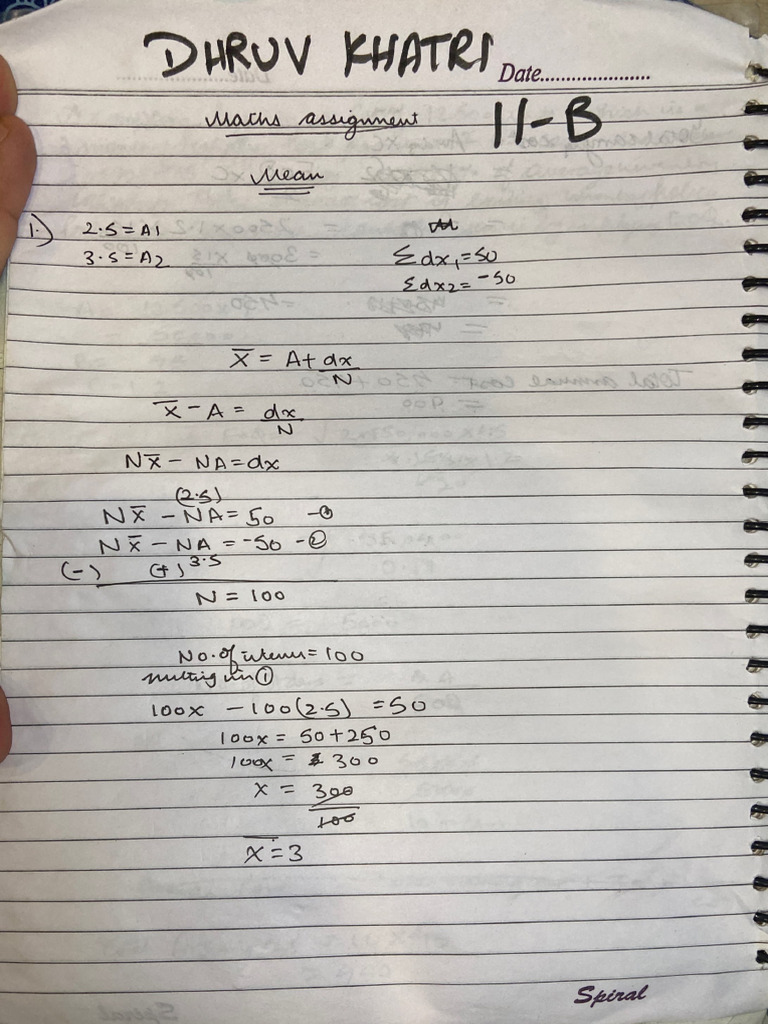 DHRUV KHATRI
Date....................
Maths assignment 11-B
Mean
1.) 2.5 = A1
3.5 = A2 Σdx₁ = 50
Σdx2 = -50
X̄ = A + dx/N
X̄ - A = dx/N
NX̄ - NA = dx
(2.5)
NX̄ - NA = 50 -①
NX̄ - NA = -50 -②
(-) (+) 3.5
N = 100
No. of items = 100
putting in ①
100x - 100(2.5) = 50
100x = 50 + 250
100x = 300
x = 300/100
X̄ = 3
Spiral